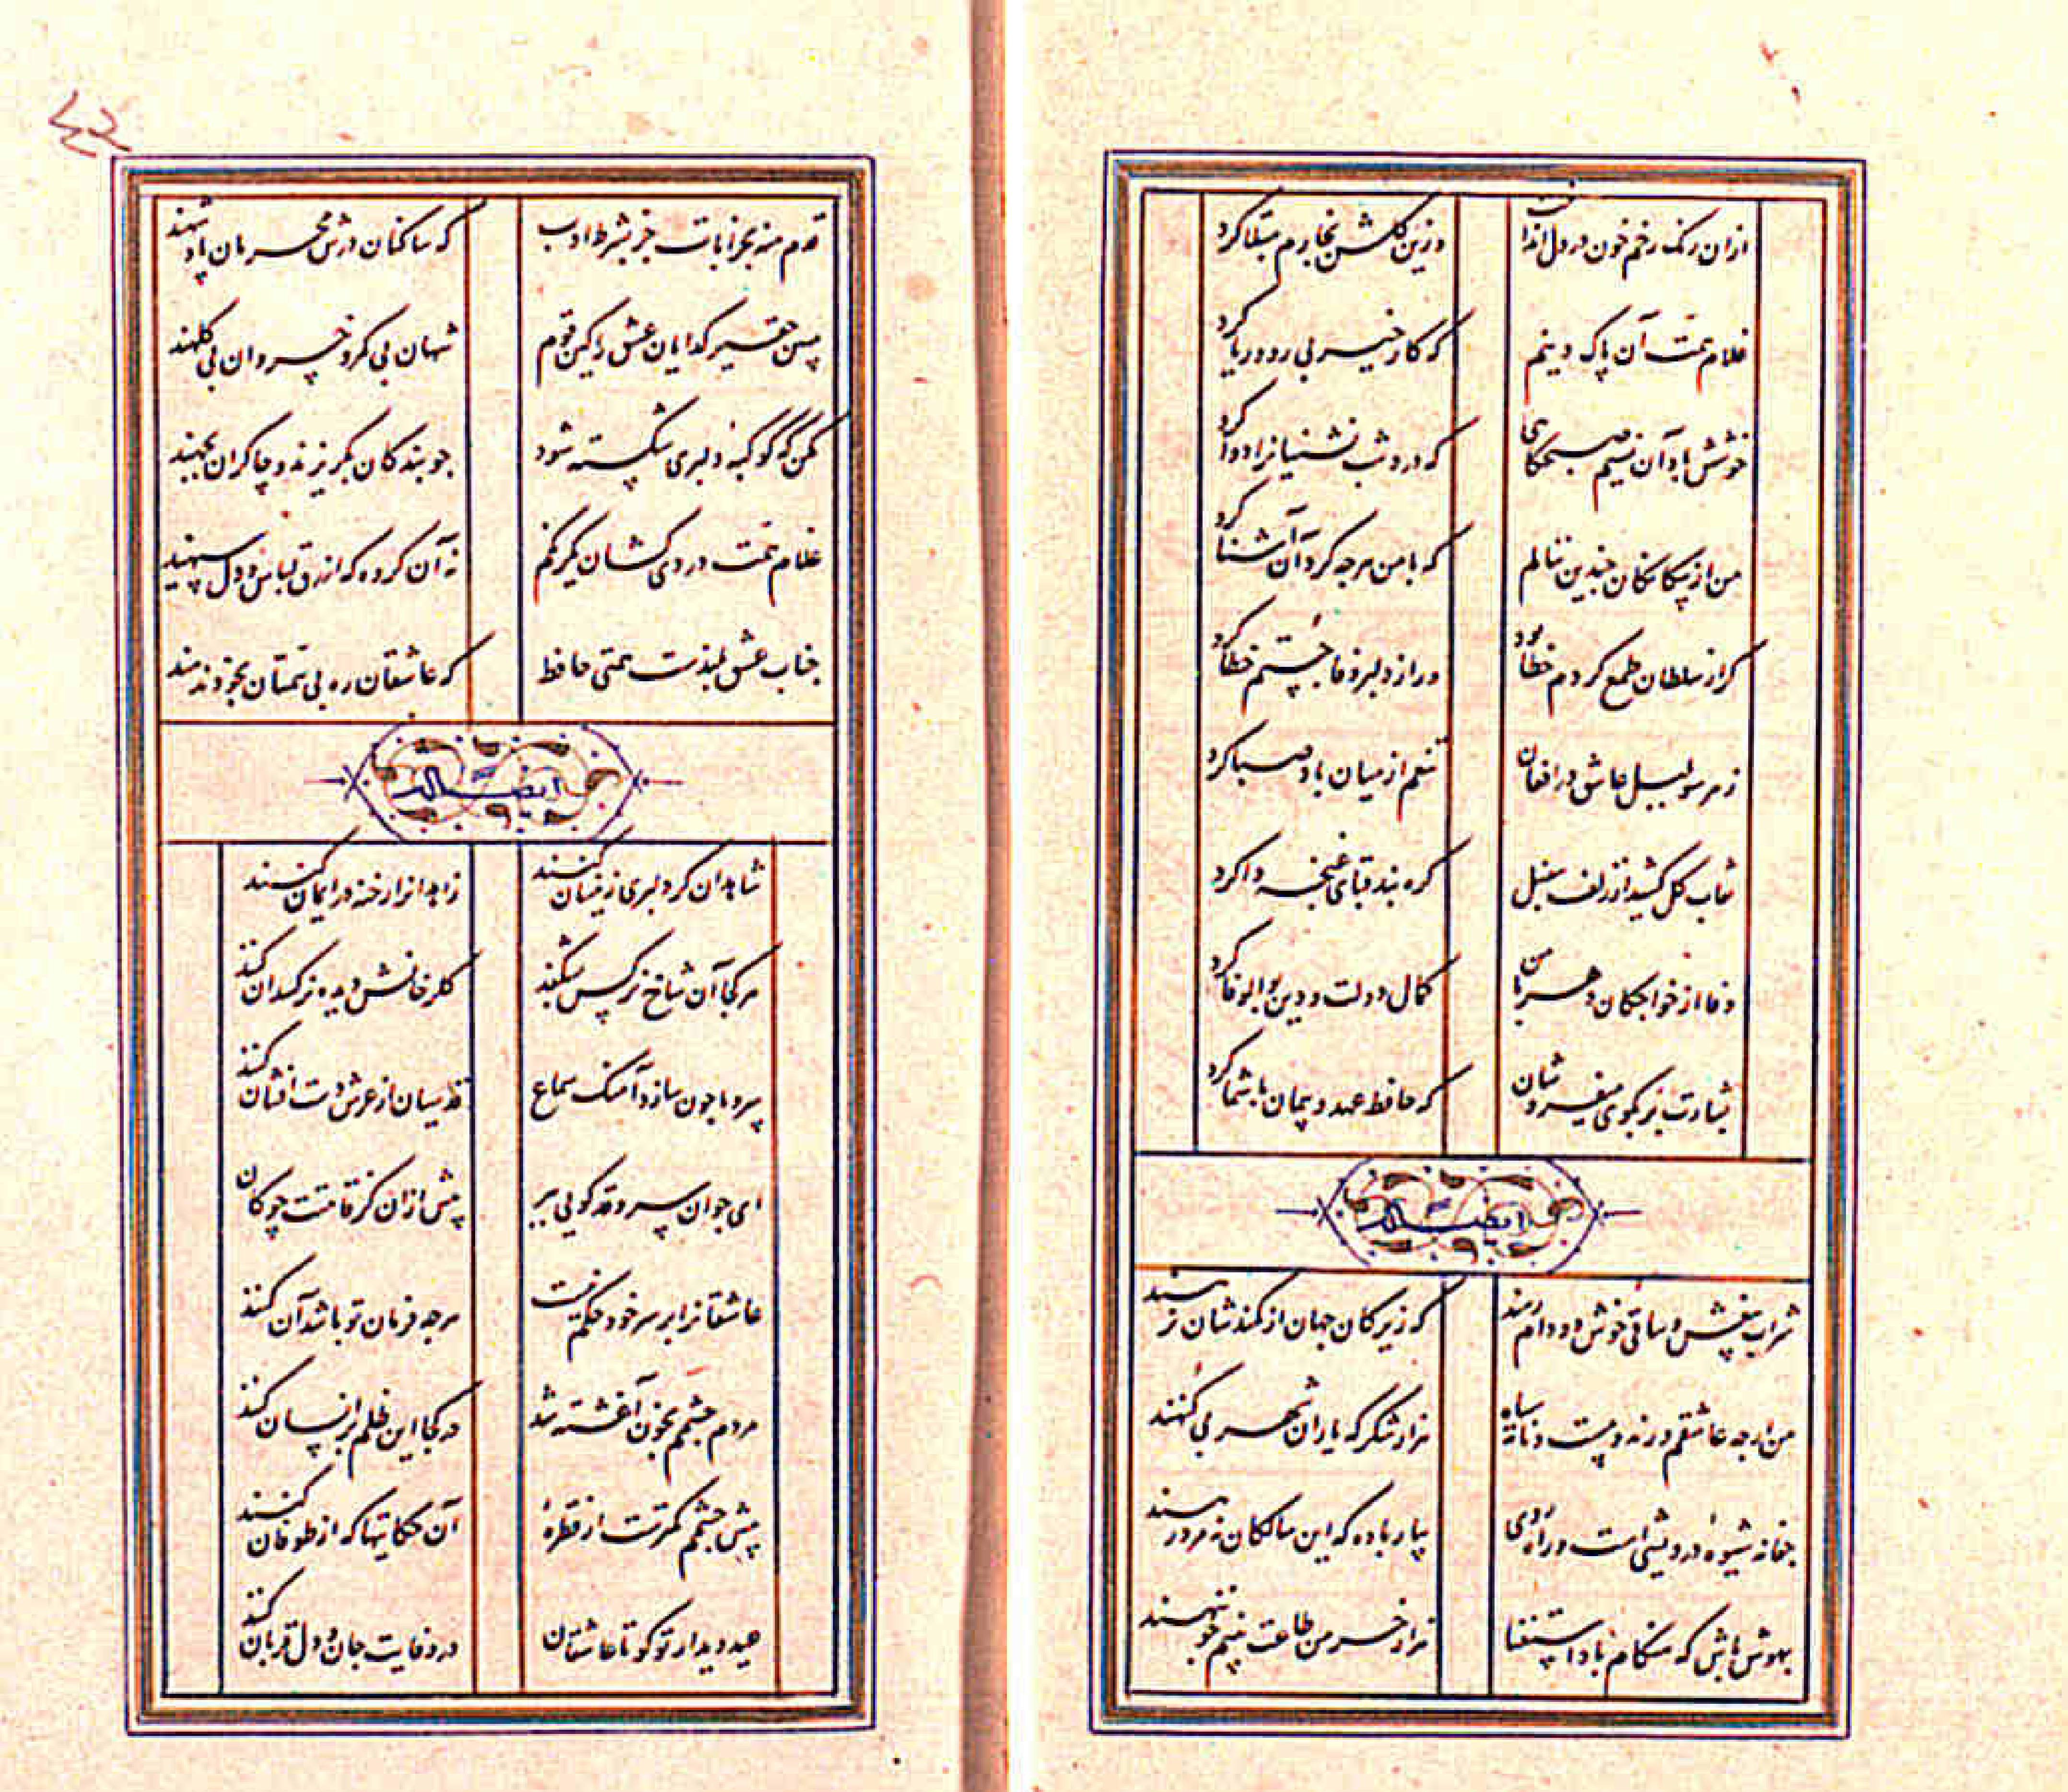 ازان رنک رخم خون در دل انداخت
وزین کلشن بخارم مبتلا کرد
غلام همت آن پاک دینم
که کار خیر بی رو و ریا کرد
خوشش باد آن نسیم صبحکاهی
که درد شب نشنیانرا دوا کرد
من از بیکانکان چندین ننالم
که با من هرجه کرد آن آشنا کرد
کر از سلطان طمع کردم خطا بود
ور از دلبر وفا جُستم خطا کرد
ز هر سو بلبل عاشق در افغان
تنعم از میان باد صبا کرد
نقاب کل کشید از زلف سنبل
کره بند قبای غنجه وا کرد
وفا از خواجکان دهر با من
کمال دولت و دین بوالوفا کرد
بشارت بر بکوی میفروشان
که حافظ عهد و پیمان با شما کرد
ایضاً له
شراب بیغش و ساقی خوش دو دام رهند
که زیرکان جهان از کمندشان نرهند
من ارجه عاشقم و رند و مست و نامه سیاه
هزار شکر که یاران شهر بی کُنهند
جفا نه شیوهٔ درویشی است و راه روی
بیار باده که این سالکان نه مرد رهند
بهوش باش که هنکام باد استغنا
هزار خرمن طاعت بنیم جو ننهند
۴۲
قدم منه بخرابات جز بشرط ادب
که ساکنان درش محرمان پادشهند
مبین حقیر کدایان عشق را کین قوم
شهان بی کمر و خسروان بی کلهند
مکن که کوکبه دلبری شکسته شود
جو بندکان بکریزند و چاکران بجهند
غلام همت دردی کشان یکرنکم
نه آن کروه که ازرق لباس و دل سیهند
جناب عشق بلندست همتی حافظ
که عاشقان ره بی همتان بخود ندهند
ایضاً له
شاهدان کر دلبری زینسان کنند
زاهدانرا رخنه در ایمان کنند
هر کجا آن شاخ نرکس بشکفد
کلرخانش دیده نرکسدان کنند
سرو ما چون سازد آهنک سماع
قدسیان از عرش دست افشان کنند
ای جوان سرو قد کویی ببر
پیش ازان کز قامتت چوکان
عاشقانرا بر سر خود حکم نیست
هرجه فرمان تو باشد آن کنند
مردم جشمم بخون آغشته شد
در کجا این ظلم بر انسان کنند
پیش جشمم کمترست از قطرهٔ
آن حکایتها که از طوفان کنند
عید دیدار تو کو تا عاشقان
در وفایت جان و دل قربان کنند